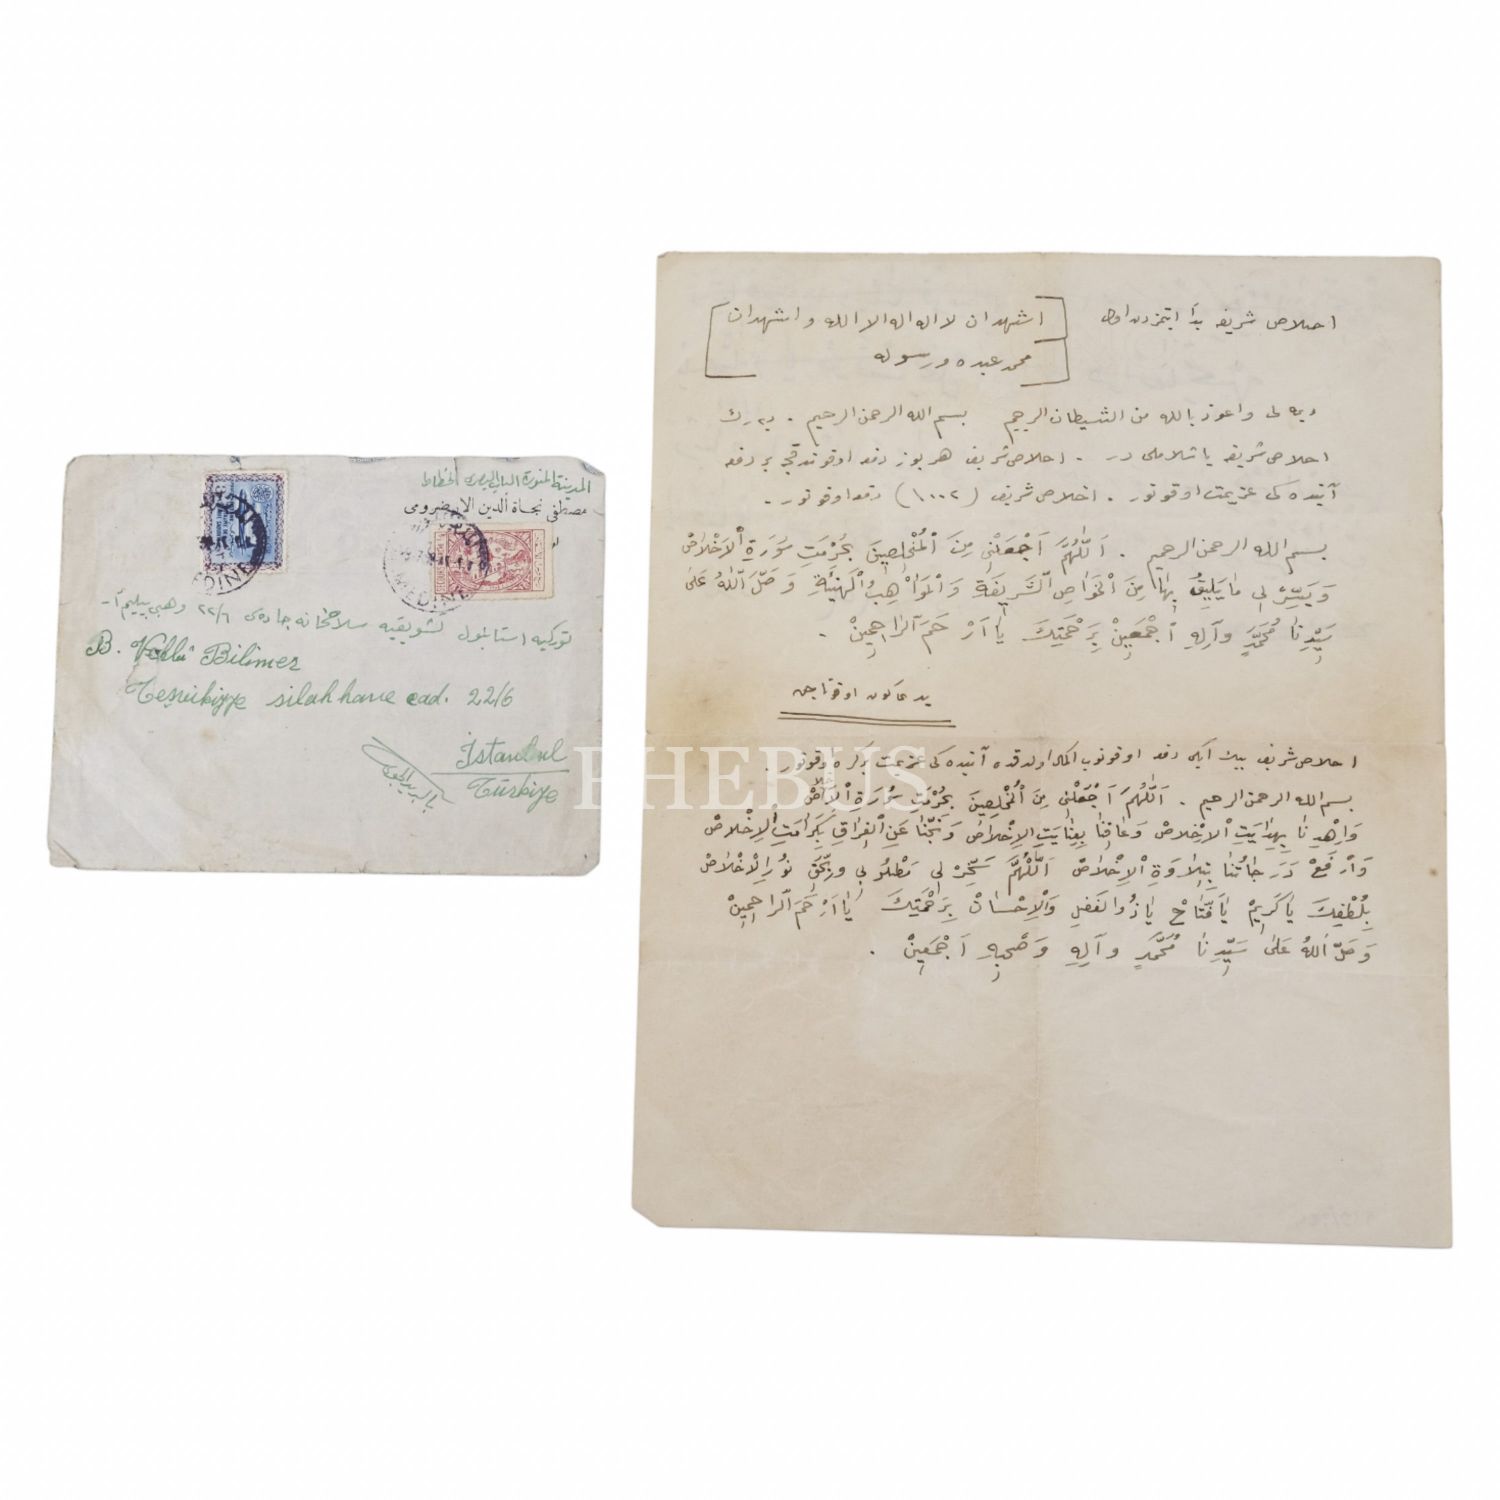 المدينة المنورة الخطاط
مصطفى نجاة الدين الارضرومى
MEDINE
توركيه استانبول تشويقيه سلاحخانه جاده‌سى ٢٢/٦ وهبى بيليمر
B. Vehbi Bilimer
Teşvikiye silahhane cad. 22/6
İstanbul
Türkiye
بالبريد الجوي
اخلاص شريفه بدأ ايتمزدن اول
اشهد ان لا اله الا الله واشهد ان
محمد عبده ورسوله
ديه لى واعوذ بالله من الشيطان الرجيم بسم الله الرحمن الرحيم . ديه رك
اخلاص شريفه باشلاملى در . اخلاص شريف هر يوز دفعه اوقوندقجه بر دفعه
آتيده كى عزيمت اوقونور . اخلاص شريف (١٠٠٢) دفعه اوقونور .
بسم الله الرحمن الرحيم . اَللّٰهُمَّ اَجْعَلْنِى مِنَ الْمُخْلِصِينَ بِحُرْمَتِ سُورَةِ الْاِخْلَاصْ
وَيَسِّرْ لِى مَا يَلِيقُ بِهَا مِنَ الْخَوَاصِ الشَّرِيفَةِ وَالْمَوَاهِبُ الْهَنِيَّةِ وَصَلَّ اللهُ عَلَىٰ
سَيِّدِنَا مُحَمَّدٍ وَآلِهِ اَجْمَعِينْ بِرَحْمَتِكَ يَا اَرْحَمَ الرَاحِمِينْ .
اخلاص شريف بيك ايكى دفعه اوقونوب اكمال اولدقده آتيده كى عزيمت بر كره اوقونور .
بسم الله الرحمن الرحيم . اَللّٰهُمَّ اَجْعَلْنِى مِنَ الْمُخْلِصِينَ بِحُرْمَتِ سُورَةِ الْاِخْلَاصْ
وَاهْدِنَا بِهِدَايَتِ الْاِخْلَاصْ وَعَافِنَا بِعِنَايَتِ الْاِخْلَاصْ وَنَجِّنَا عَنِ الْفِرَاقِ بِكَرَامَتِ الْاِخْلَاصْ
وَارْفَعْ دَرَجَاتُنَا بِتِلَاوَةِ الْاِخْلَاصْ اَللّٰهُمَّ سَخِّرْ لِى مَطْلُوبِى وَبِحَقِ نُورِ الْاِخْلَاصْ
بِلُطْفِكَ يَا كَرِيمْ يَا فَتَّاحْ يَا ذُو الفَضْلِ وَالْاِحْسَانْ بِرَحْمَتِكَ يَا اَرْحَمَ الرَاحِمِينْ
وَصَلَّ اللهُ عَلَىٰ سَيِّدِنَا مُحَمَّدٍ وَآلِهِ وَصَحْبِهِ اَجْمَعِينْ .
PHEBUS